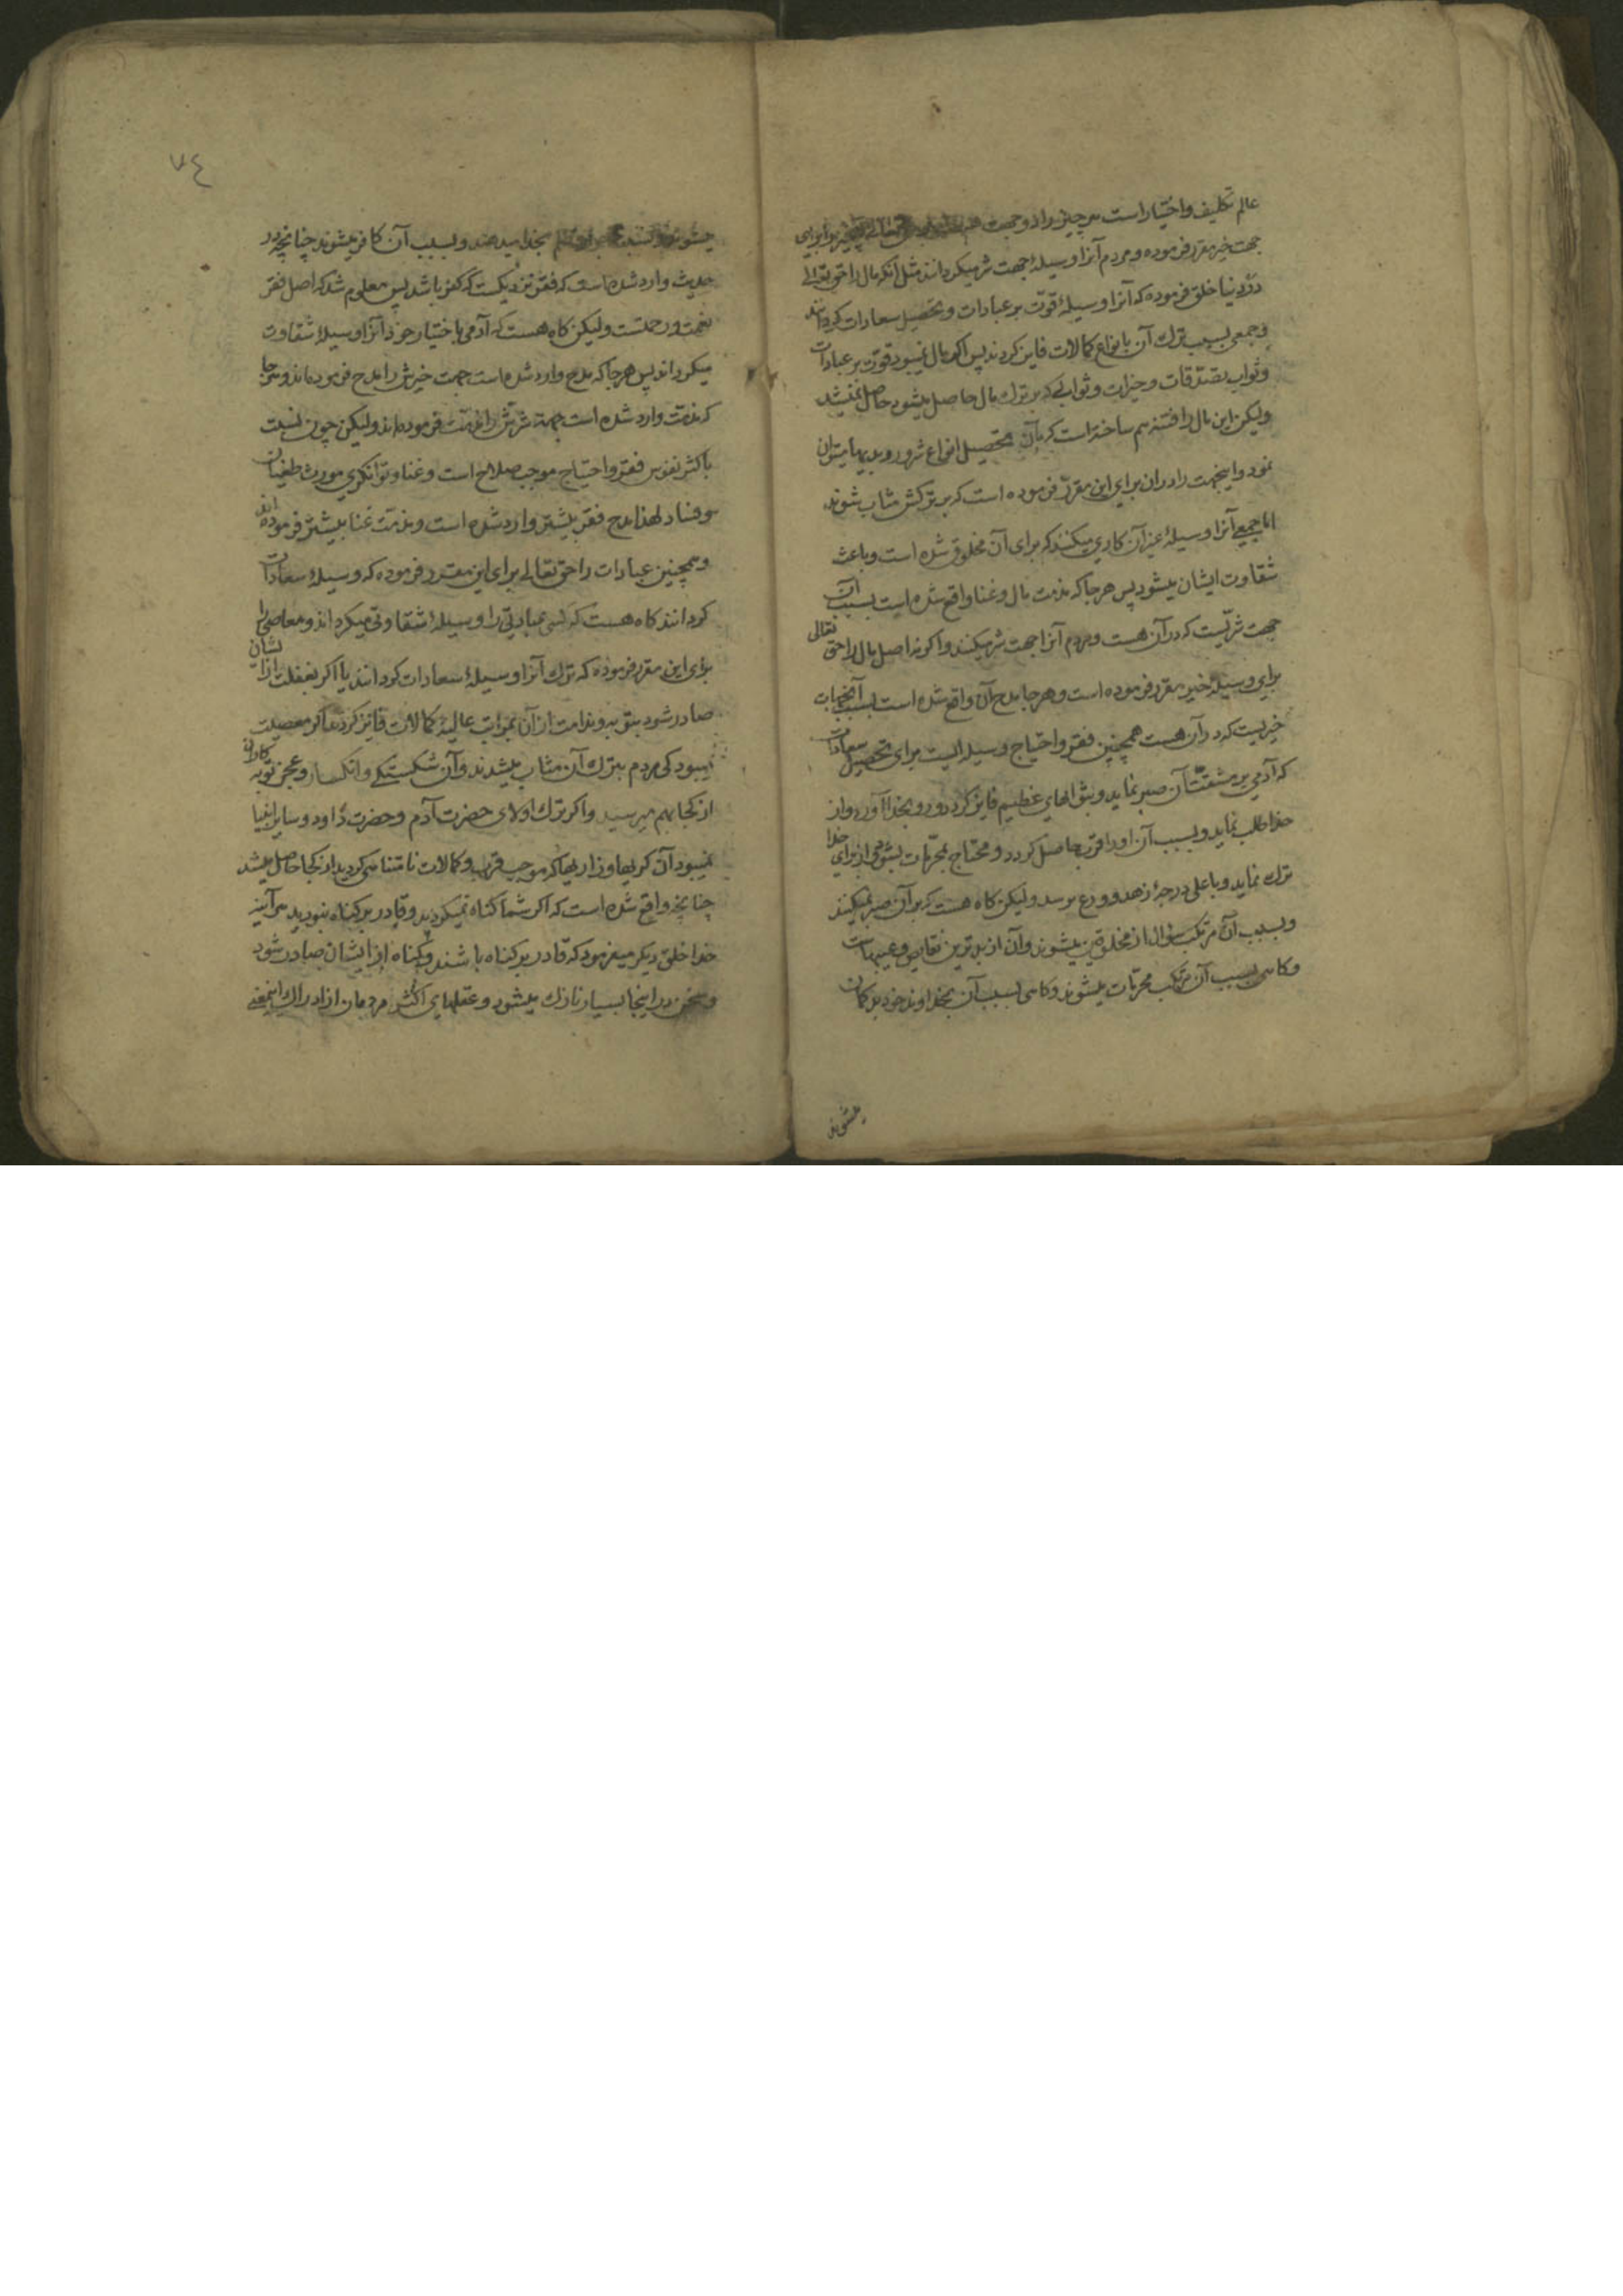 عالم تکلیف واختیار است هر چیز را دو جهت
جهت خیر مقرر فرموده و مردم آنرا وسیلهٔ جهت شر میکردانند مثل آنکه مال را حق تعالی
در دنیا خلق فرموده که آنرا وسیلهٔ قوّت بر عبادات و تحصیل سعادات کردانند
و جمعی بسبب ترک آن بانواع کمالات فایز کردند پس اکر مال نمیبود قوّت بر عبادات
و ثواب تصدّقات و خیرات و ثوابی که بر ترک مال حاصل میشود حاصل نمیشد
ولیکن این مال را فتنه هم ساخته است که بآن تحصیل انواع شرور و بدیها میتوان
نمود و اینجهت را در آن برای این مقرّر فرموده است که بر ترکش مثاب شوند
امّا جمیعی آنرا وسیلهٔ غیر آن کاری میکنند که برای آن مخلوق شده است و باعث
شقاوت ایشان میشود پس هر جا که مذمت مال و غنا واقع شده است بسبب آن
جهت شرّیست که در آن هست و مردم آنرا جهت شر میکنند و اکر نه اصل مال را حق تعالی
برای وسیلهٔ خیر مقرر فرموده است و هر جا مدح آن واقع شده است بسبب آنجهات
خیریست که در آن هست همچنین فقر و احتیاج وسیله ایست برای تحصیل سعادات
که آدمی بر مشقّت آن صبر نماید و بثوابهای عظیم فایز کردد و رو بخدا آورد و از
خدا طلب نماید و بسبب آن او را قرب حاصل کردد و محتاج بمحرّمات بشود و از برای خدا
ترک نماید و باعلی درجهٔ زهد و ورع برسد ولیکن کاه هست که بر آن صبر نمیکنند
و بسبب آن مرتکب سؤال از مخلوقین میشوند و آن از بدترین نقایص و عیبهاست
و کاهی بسبب آن مرتکب محرّمات میشوند و کاهی بسبب آن بخداوند خود بد کمان
میشوند
٧٤
میشوند و نسبت بخدا میدهند و بسبب آن کافر میشوند چنانچه در
حدیث وارد شده است که فقر نزدیکست که کفر باشد پس معلوم شد که اصل فقر
نعمت و رحمتست ولیکن کاه هست که آدمی باختیار خود آنرا وسیلهٔ شقاوت
میکرداند پس هر جا که مدح وارد شده است جهت خیرش را مدح فرموده‌اند و هر جا
که مذمّت وارد شده است جهة شرّش را مذمّت فرموده‌اند ولیکن چون نسبت
باکثر نفوس فقر و احتیاج موجب صلاح است و غنا و توانکری مورث طغیان
و فساد لهذا مدح فقر بیشتر وارد شده است و مذمّت غنا بیشتر فرموده‌اند
و همچنین عبادات را حق تعالی برای این مقرر فرموده که وسیلهٔ سعادات
کردانند کاه هست که کسی عبادتی را وسیلهٔ شقاوتی میکرداند و معاصی را
برای این مقرر فرموده که ترک آنرا وسیلهٔ سعادات کردانند یا اکر بغفلت از ایشان
صادر شود بتوبه و ندامت از آن بمراتب عالیهٔ کمالات فایز کردند اکر معصیت
نمیبود کی مردم بترک آن مثاب میشدند و آن شکستکی و انکسار و عجز توبه کاران
از کجا بهم میرسید و اکر ترک اولای حضرت آدم و حضرت داود و سایر انبیا
نمیبود آن کریها و زاریها که موجب قرب و کمالات نامتناهی کردید از کجا حاصل میشد
چنانچه واقع شده است که اکر شما کناه نمیکردید و قادر بر کناه نبودید هر آینه
خدا خلق دیکر میفرمود که قادر بر کناه باشند و کناه از ایشان صادر شود
و سخن در اینجا بسیار نازک میشود و عقلهای اکثر مردمان از ادراک اینمعنی